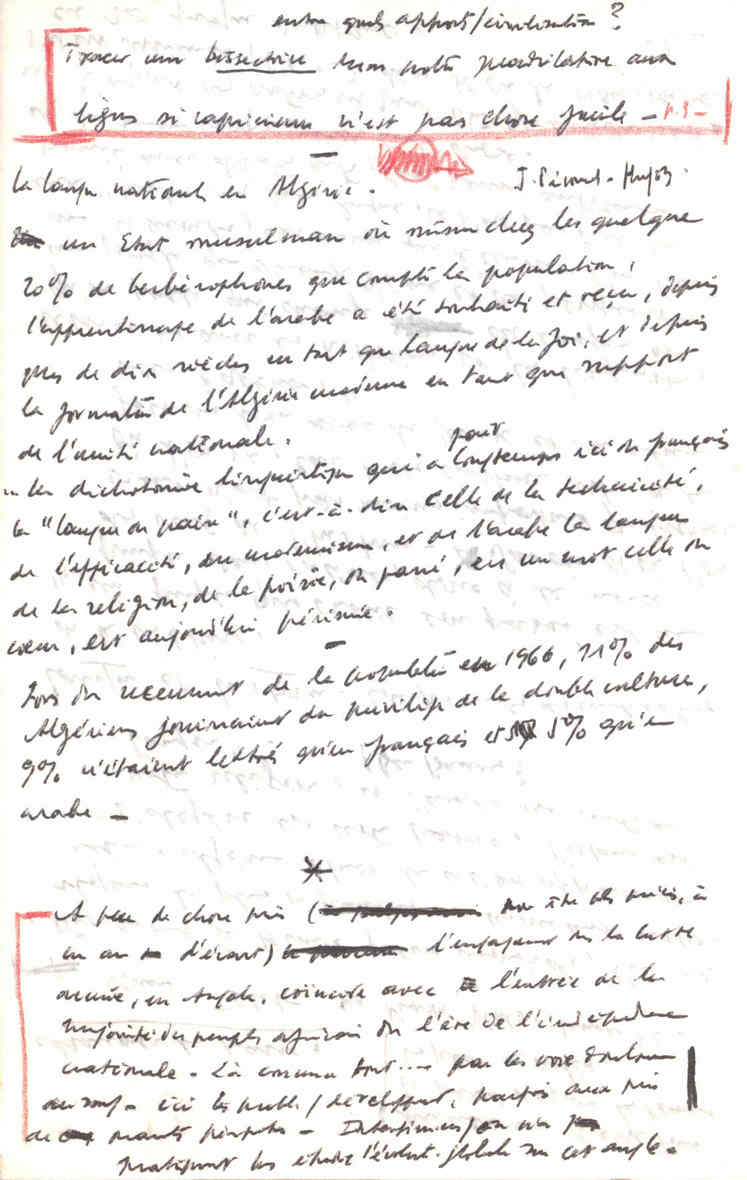 entre quels apports/civilisation ?
Tracer une bissectrice dans cette aux
lignes si capricieuses n'est pas chose facile — p. 9 —
La langue nationale en Algérie. J. Hugoz.
un Etat musulman où même chez les quelque
20% de berbérophones que compte la population,
l'apprentissage de l'arabe a été souhaité et reçu, depuis
plus de dix siècles en tant que langue de la foi, et depuis
la formation de l'Algérie moderne en tant que support
de l'unité nationale.
pour
la dichotomie linguistique qui a longtemps ici du français
la "langue du pain", c'est-à-dire celle de la technicité,
de l'efficacité, du modernisme, et de l'arabe la langue
de la religion, de la poésie, du passé, en un mot celle du
coeur, est aujourd'hui périmée.
Lors du recensement de la population en 1966, 11% des
Algériens jouissaient du privilège de la double culture,
9% n'étaient lettrés qu'en français et 5% qu'en
arabe —
*
A peu de chose près ( à
un an d'écart) l'engagement dans la lutte
armée, en Angola, coïncide avec l'entrée de la
majorité des peuples africains dans l'ère de l'indépendance
nationale. Là par les voie
ici les parfois aux prix
de
pratiquement pas étudié l'évolut. globale sous cet angle.